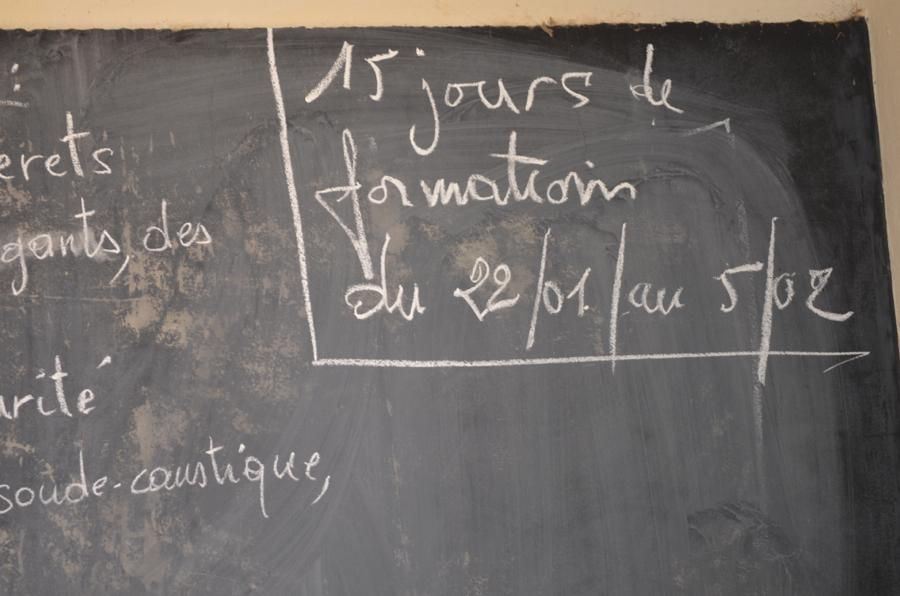 :
gants, des
soude-caustique,
15 jours de
formation
du 22/01/au 5/02